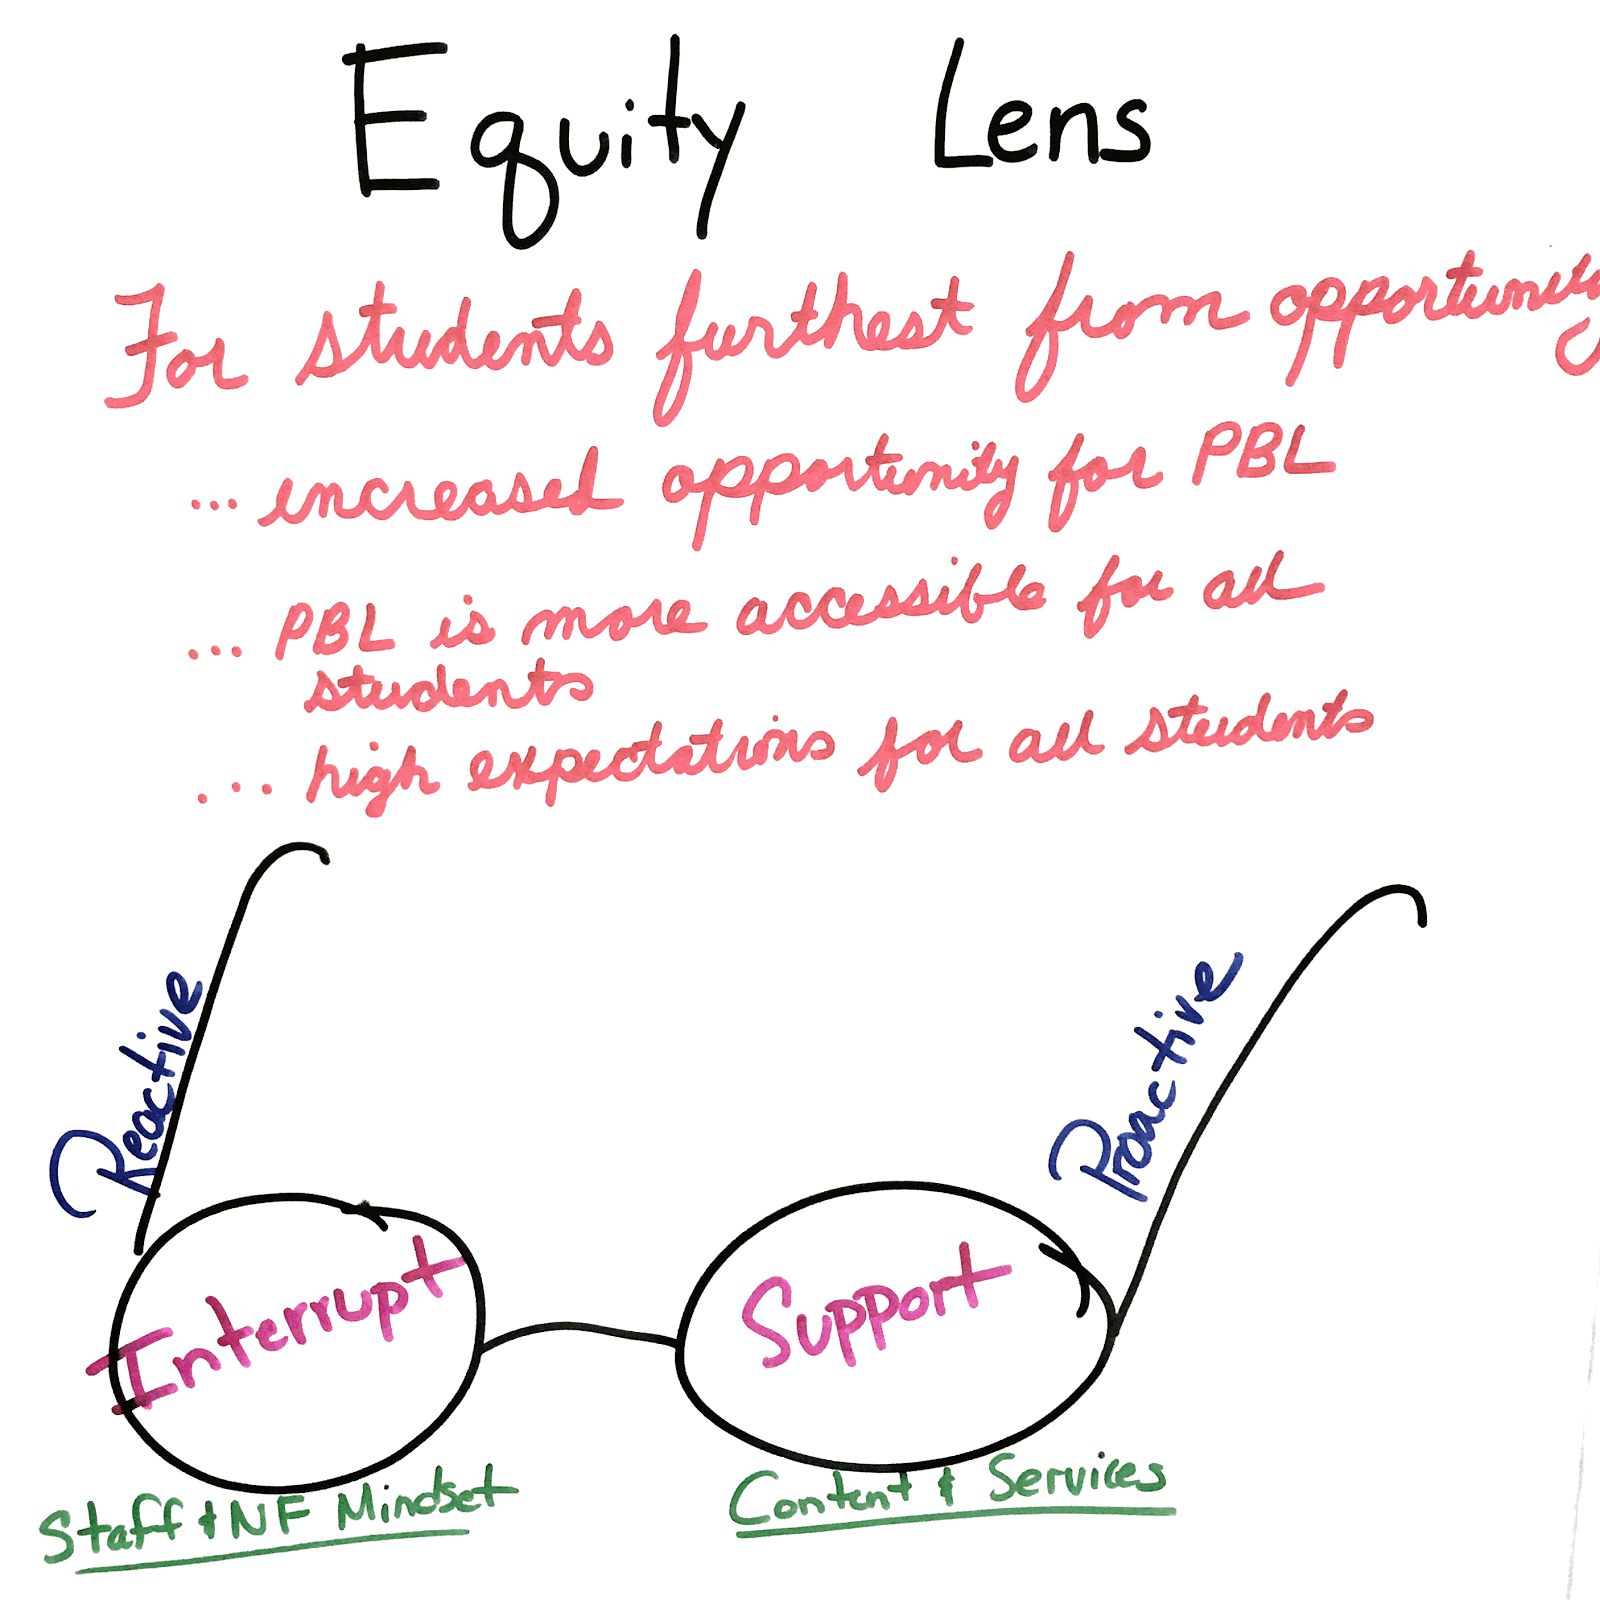 Equity Lens
For students furthest from opportunity
... increased opportunity for PBL
... PBL is more accessible for all
students
... high expectations for all students
Reactive
Proactive
Interrupt
Support
Staff & NF Mindset
Content & Services